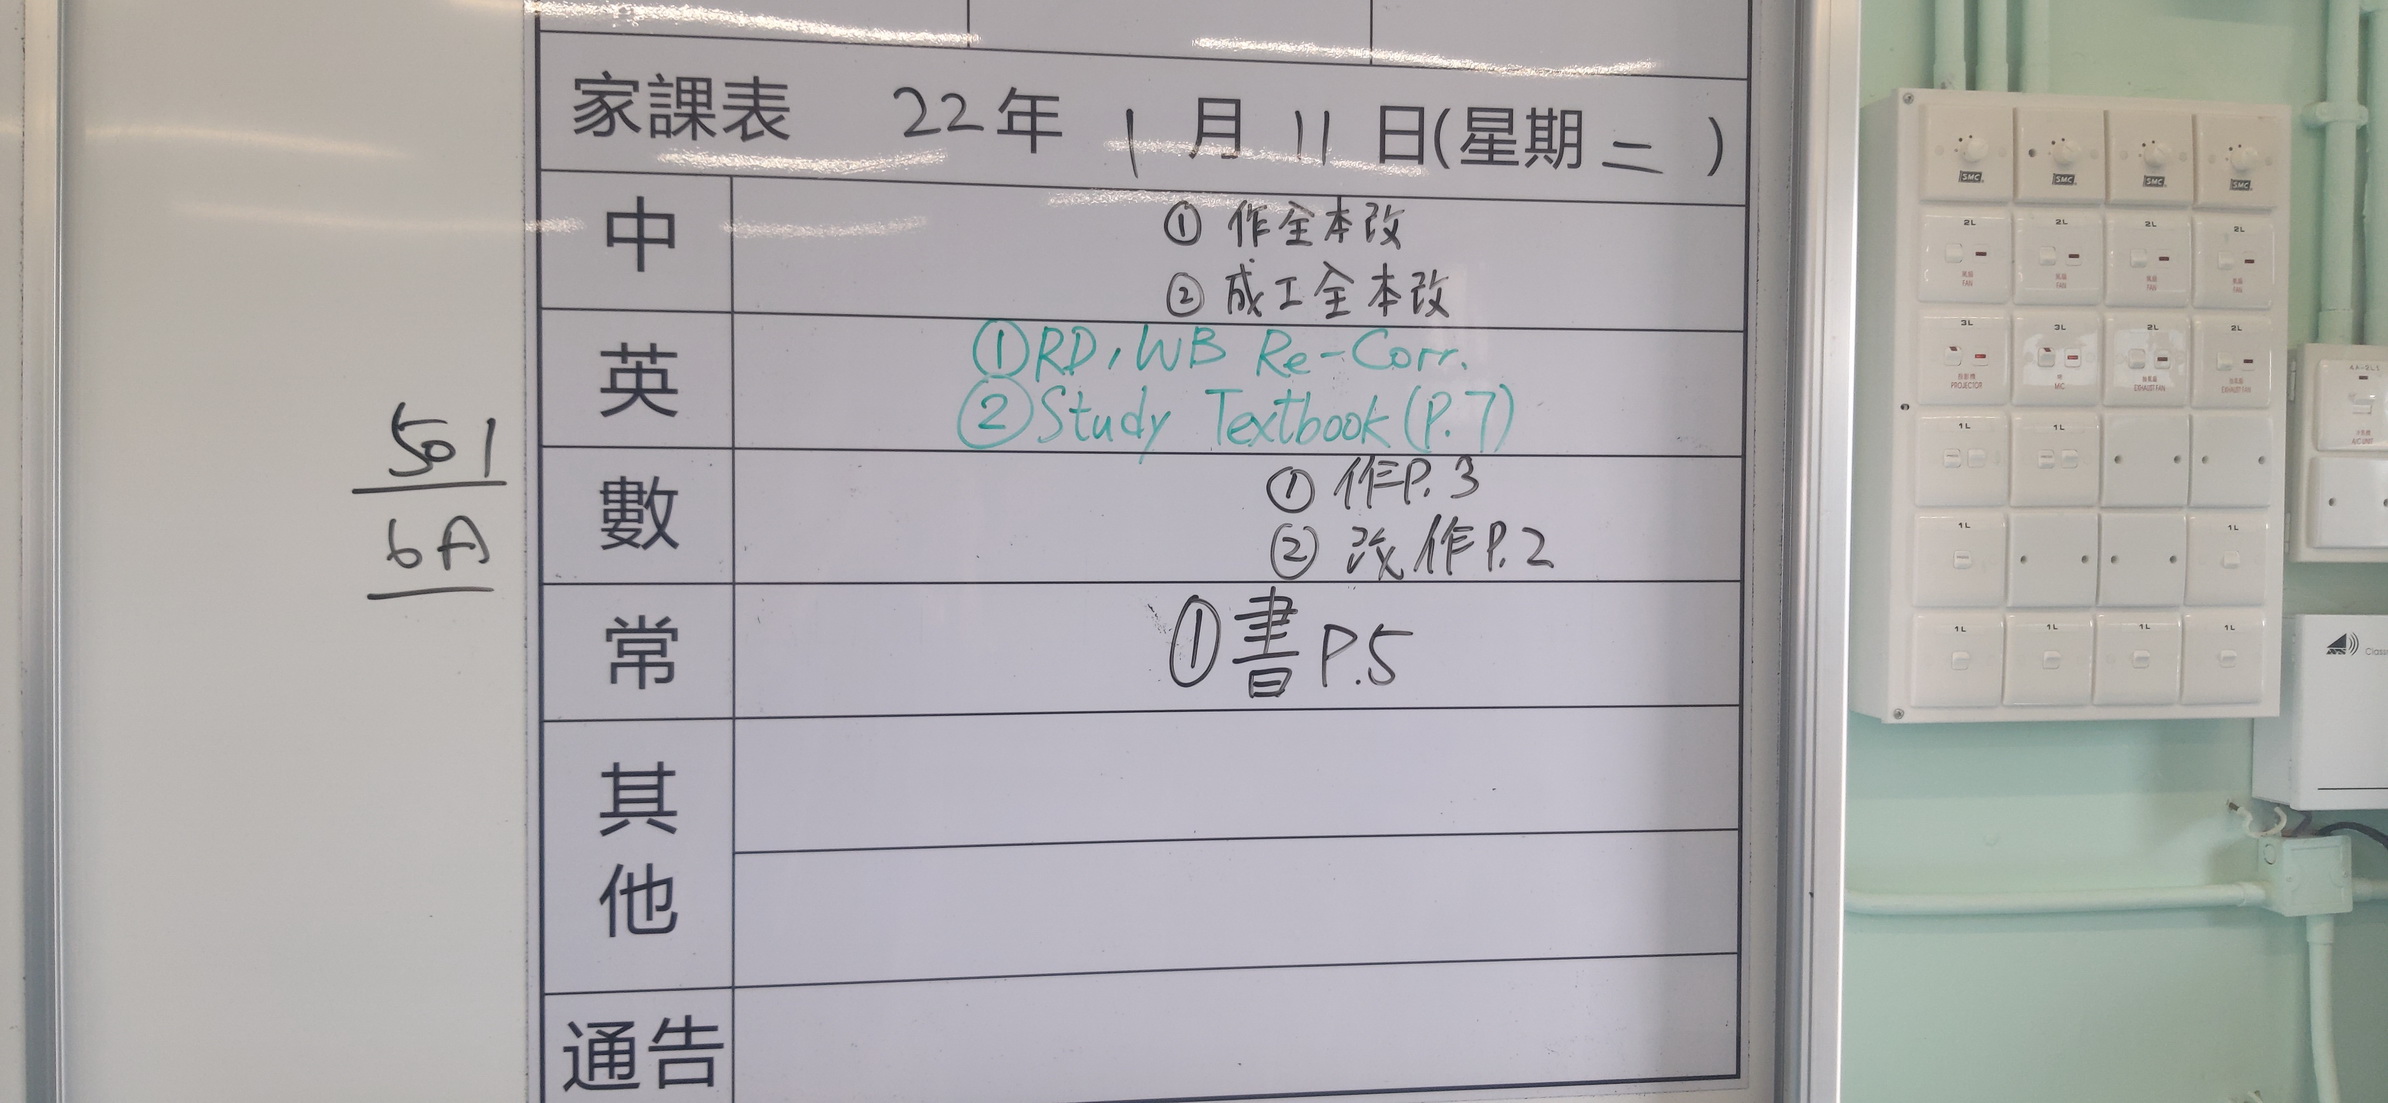 家課表 22年 1月 11日(星期二)
中
① 作全本改
② 成工全本改
英
① RD, WB Re-Corr.
② Study Textbook (P.7)
數
① 作P.3
② 改作P.2
常
① 書P.5
其他
通告
501
6A
SMC SMC SMC SMC
2L 2L 2L 2L
風扇 風扇 風扇 風扇
FAN FAN FAN FAN
3L 3L 2L 2L
投影機 咪 抽氣扇 抽氣扇
PROJECTOR MIC EXHAUST FAN EXHAUST FAN
1L 1L
1L 1L
1L 1L 1L 1L
A/C UNIT